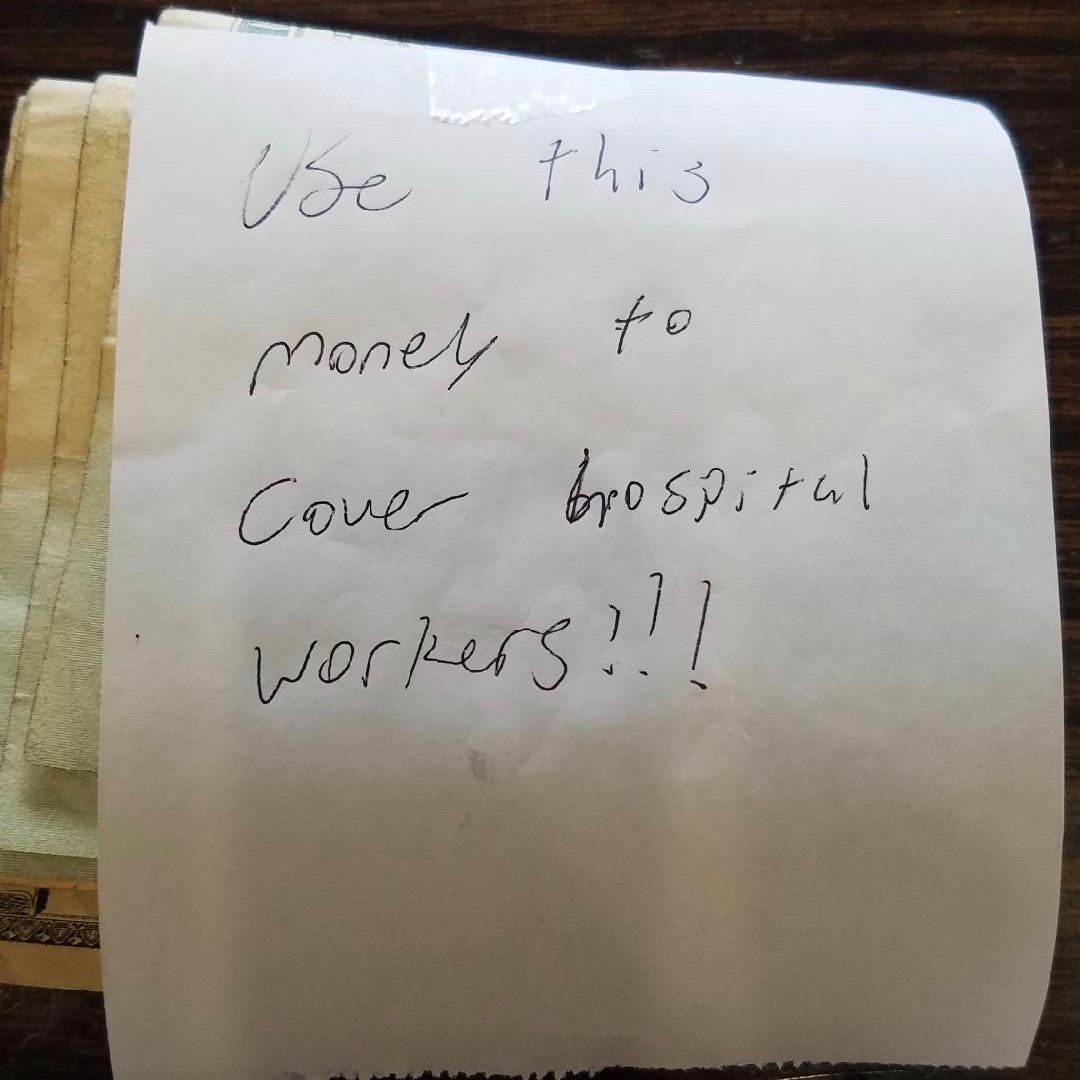 Use this
money to
cover hospital
workers!!!